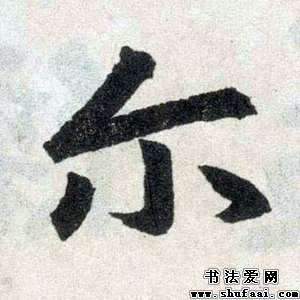 尓
书法爱网
www.shufaai.com